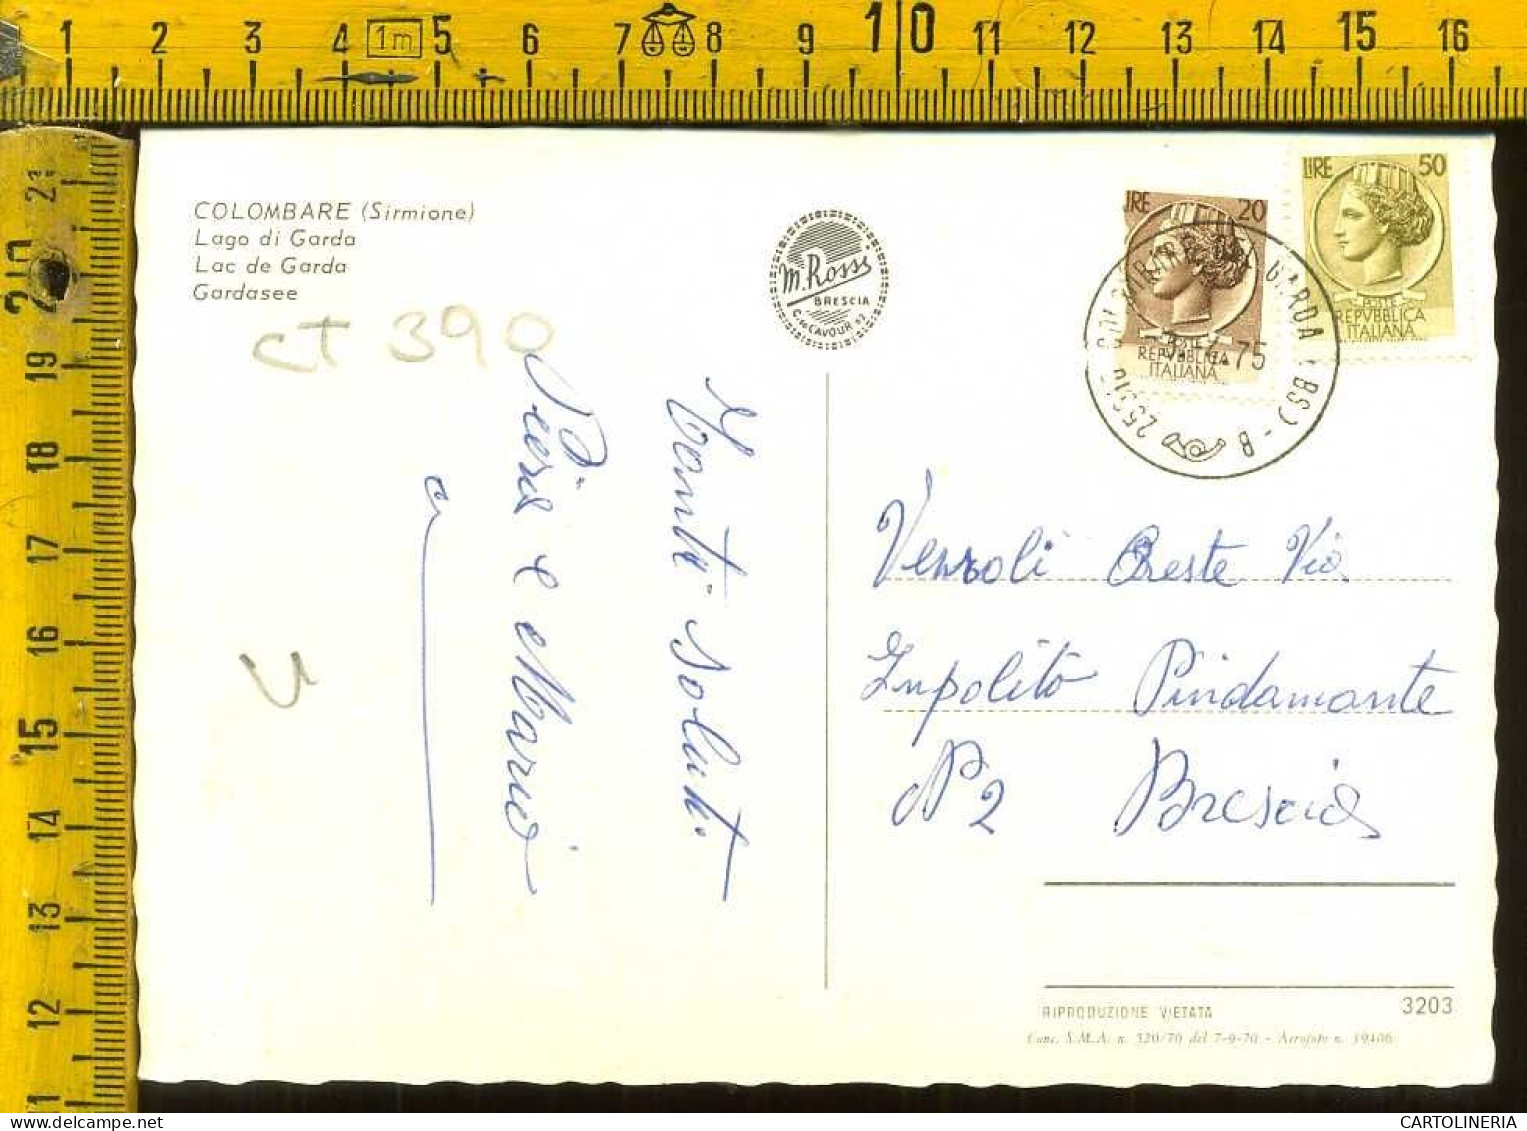 1 2 3 4 1m 5 6 7 8 9 10 11 12 13 14 15 16
COLOMBARE (Sirmione)
Lago di Garda
Lac de Garda
Gardasee
M. Rossi
BRESCIA
C.so CAVOUR 42
LIRE 20
POSTE
REPVBBLICA
ITALIANA
LIRE 50
POSTE
REPVBBLICA
ITALIANA
GARDA (BS) - B
75
CT 390
U
Tanti saluti
Piera e Mario
Venzoli Oreste Via
Inpolito Pindamante
N° 2 Brescia
RIPRODUZIONE VIETATA
3203
Conc. S.M.A. n. 520/70 del 7-9-70 - Aerofoto n. 19406
21
20
19
18
17
16
15
14
13
12
11
CARTOLINERIA